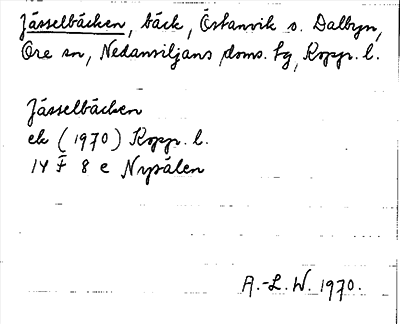 Jässelbäcken, bäck, Östanvik o. Dalbyn,
Ore sn, Nedansiljans doms. hg, Kopp. l.
Jässelbäcken
ek (1970) Kopp. l.
14 F 8 e Nysälen
A.-L. W. 1970.